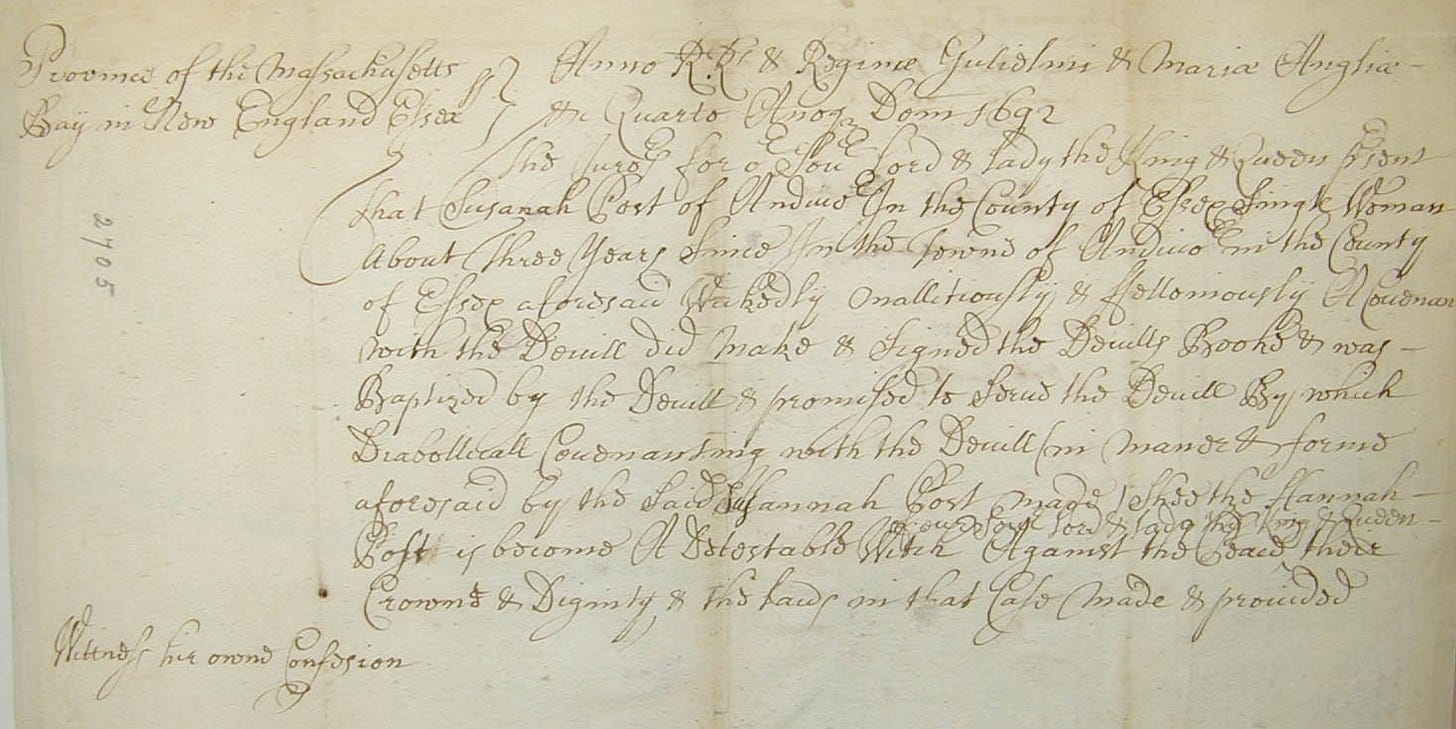 Province of the Massachusetts ss Anno R.Rs & Reginæ Gulielmi & Mariæ Angliæ
Bay in New England Essex &c Quarto Anoq Dom 1692
The Juros for oe Soue Lord & Lady the King & Queen psent
That Susanah Post of Andiuoe In the County of Essex Single Woman
About Three Years Since In the Towne of Andiuoe in the County
of Essex aforesaid Wickedly Mallitiously & ffelloniously A Couenan
with the Deuill did Make & Signed the Deuills Booke & was
Baptized by the Deuill & promised to Serue the Deuill By which
Diabollicall Couenanting with the Deuill (in Maner & forme
aforesaid by the Said Susannah Post made) Shee the Hannah
of our Soue Lord & Lady the King & Queen
Post is become A Detestable Witch Against the Peace their
Crowne & Dignity & the Laws in that Case Made & prouided
Wittness her owne Confesion
2705